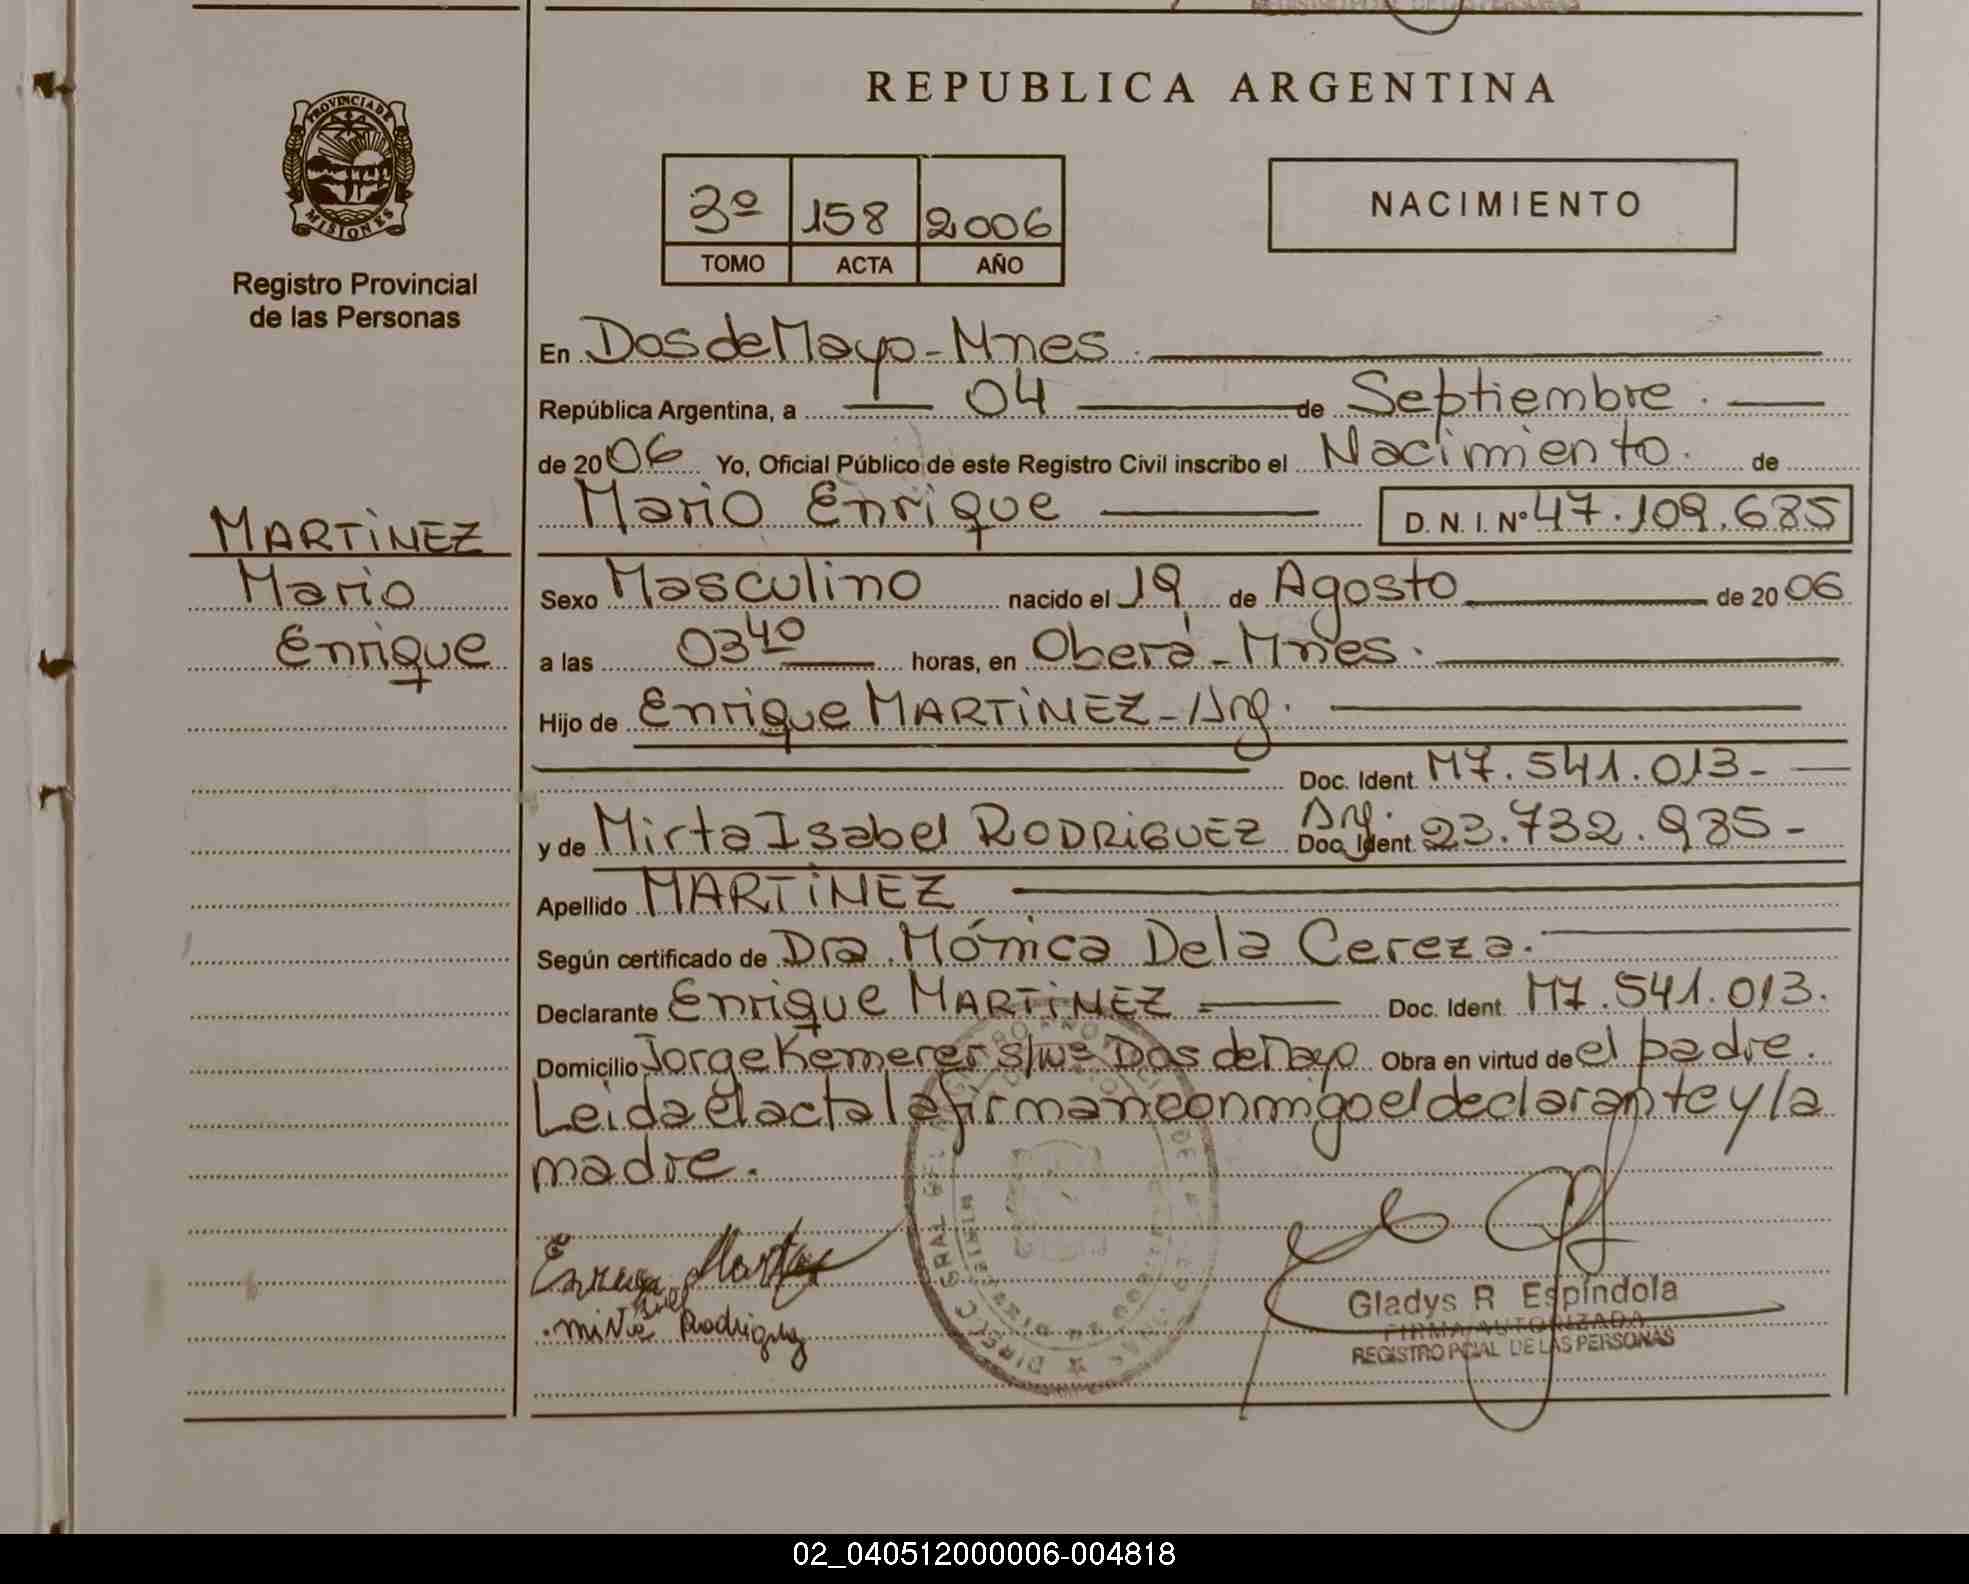 REGISTRO PCIAL. DE LAS PERSONAS
REPUBLICA ARGENTINA
PROVINCIA DE
MISIONES
Registro Provincial
de las Personas
3º 158 2006
TOMO ACTA AÑO
NACIMIENTO
En Dos de Mayo - Mnes
República Argentina, a 04 de Septiembre.
de 2006 Yo, Oficial Público de este Registro Civil inscribo el Nacimiento. de
Mario Enrique D. N. I. Nº 47.109.685
MARTINEZ
Mario
Enrique
Sexo Masculino nacido el 19 de Agosto de 2006
a las 03 40 horas, en Oberá - Mnes.
Hijo de Enrique MARTINEZ - Arg.
Doc. Ident. M7.541.013 -
y de Mirta Isabel RODRIGUEZ Arg. Doc. Ident. 23.732.985 -
Apellido MARTINEZ
Según certificado de Dra. Mónica Dela Cereza.
Declarante Enrique MARTINEZ Doc. Ident. M7.541.013.
Domicilio Jorge Kemerer s/nº Dos de Mayo Obra en virtud de el padre.
Leida el acta la firman conmigo el declarante y la
madre.
Gladys R Espíndola
FIRMA AUTORIZADA
REGISTRO PCIAL DE LAS PERSONAS
Rodriguez
02_040512000006-004818